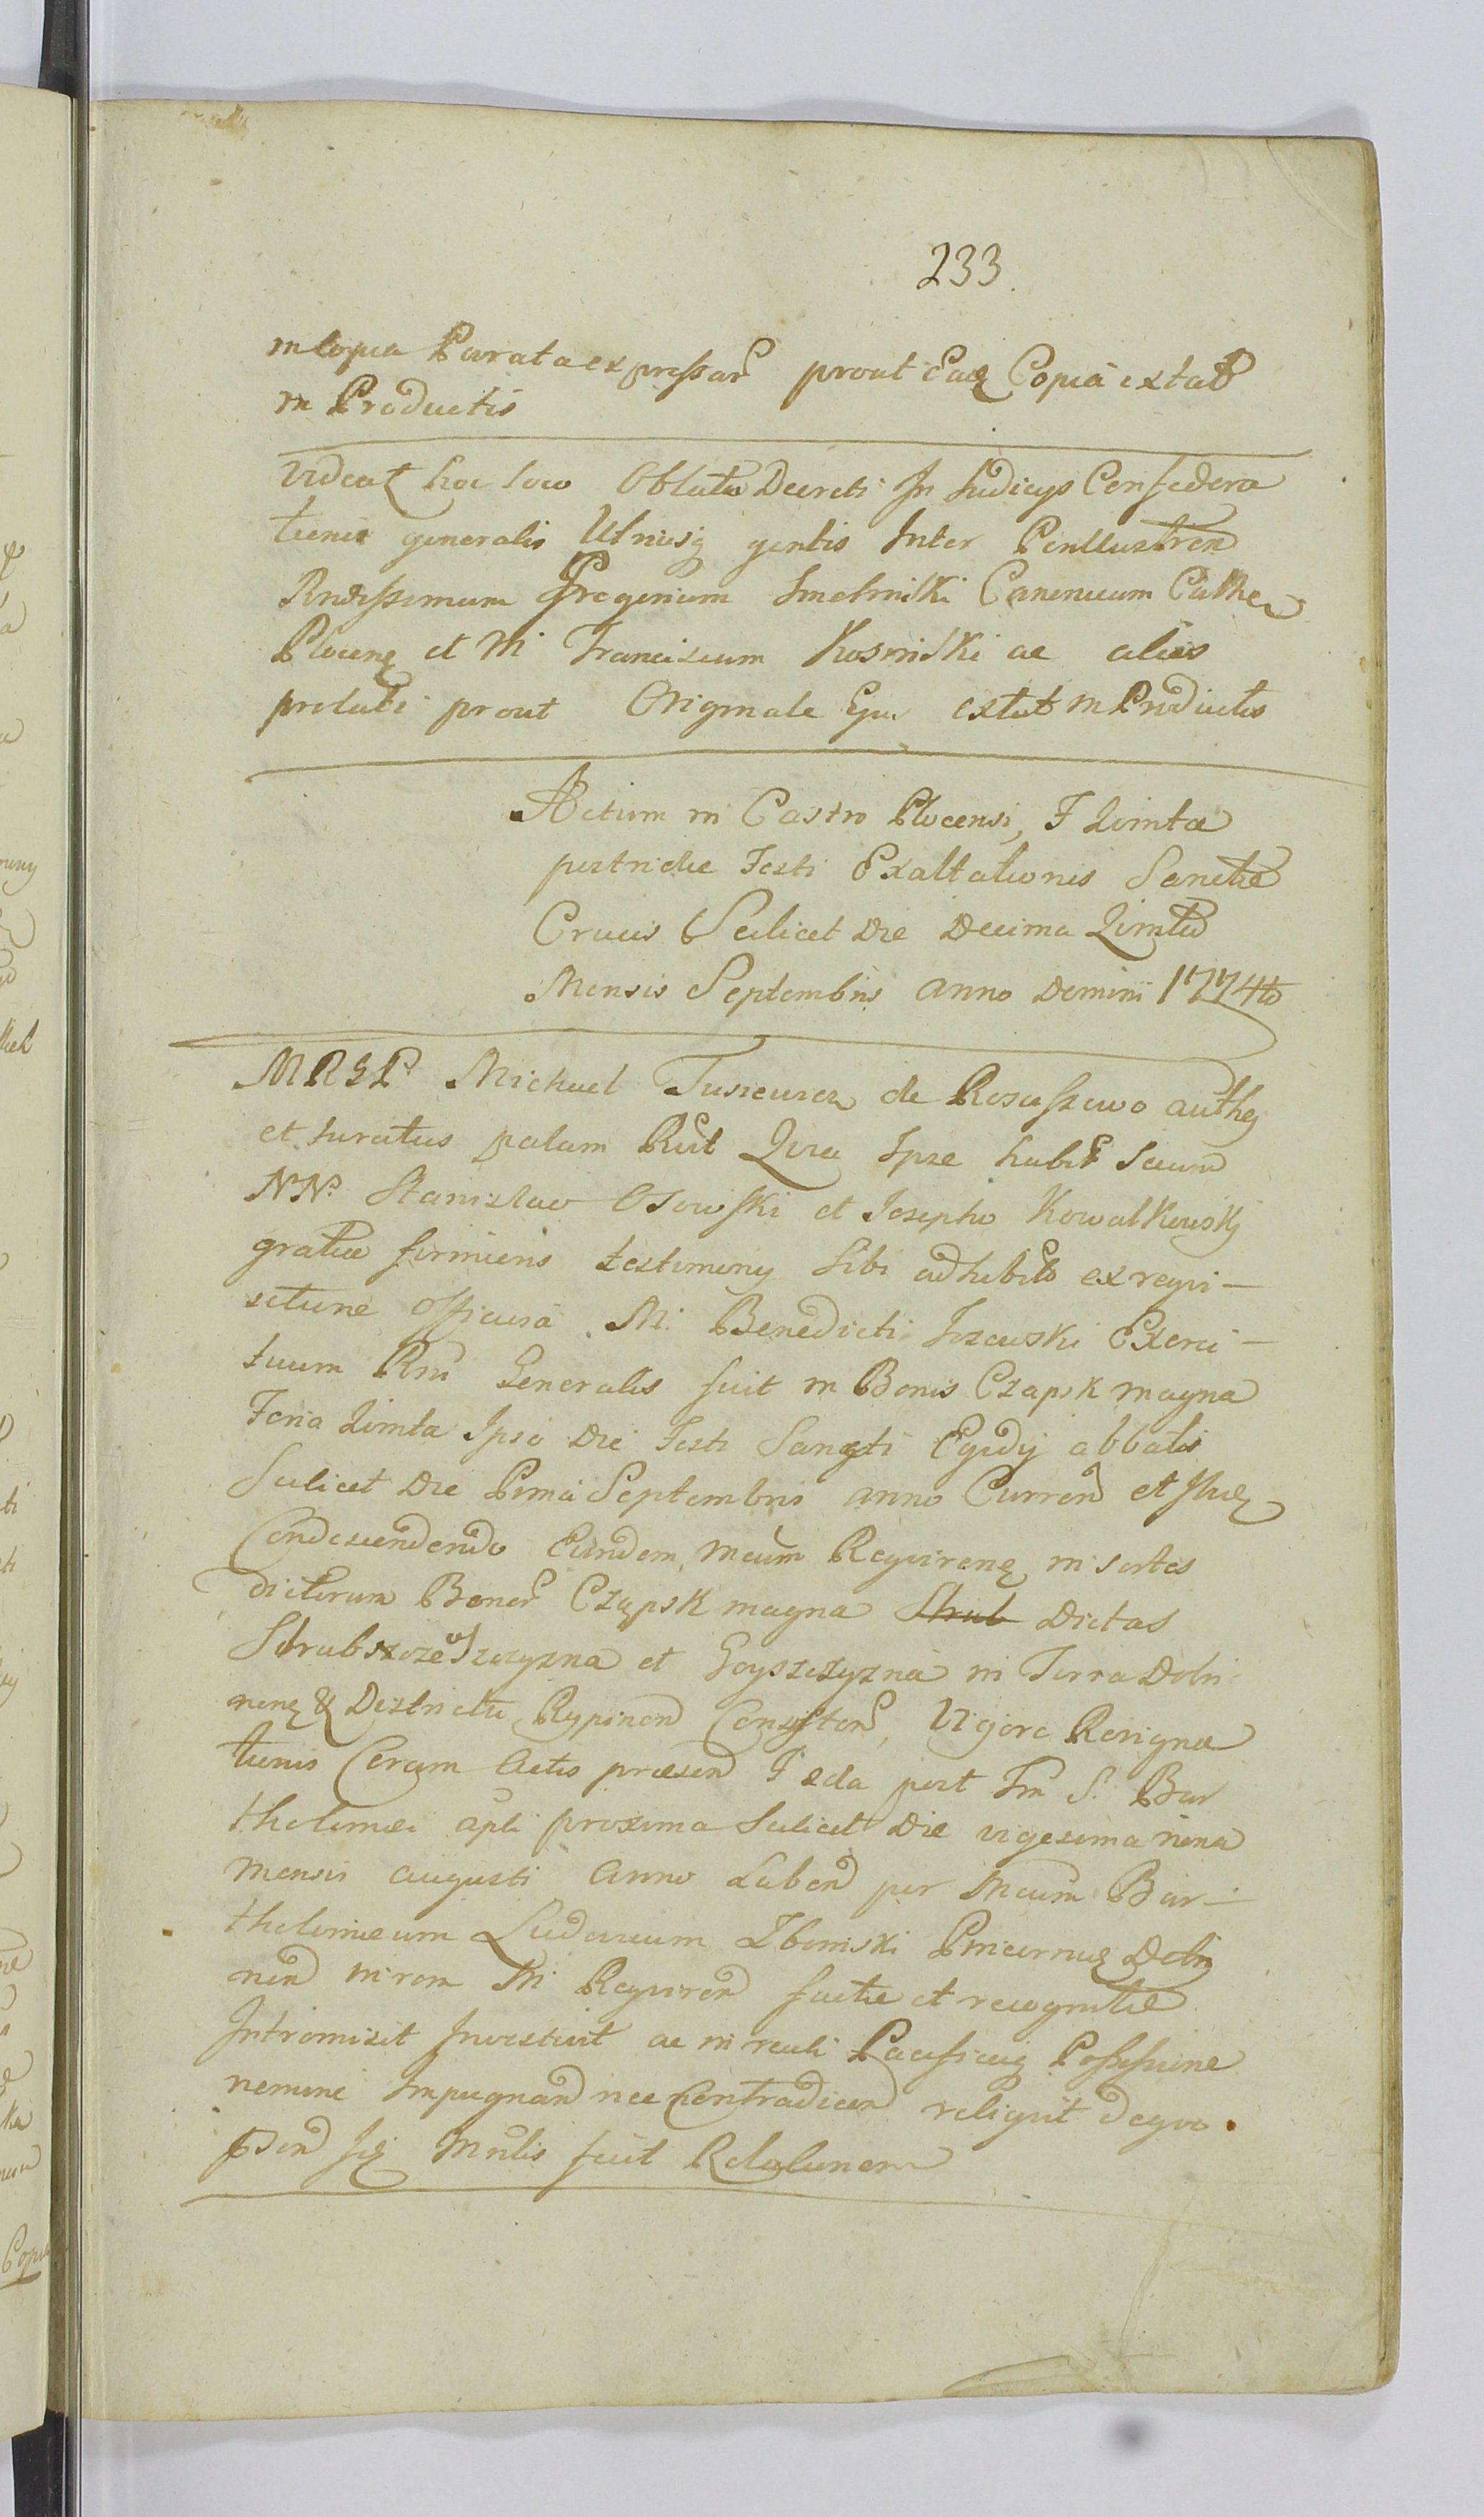 233.
in Copia Parata expressar prout Eaq Copia extat
in Productis
Videatq hoc loco Oblata Decreti In Judicys Confedera
tionis generalis Utriusq gentis Inter Perillustrem
Rndissimum Gregorium Smolinski Canonicum Cathe
Plocenq et M Franciscum Kosinski ac alios
prolati prout Originale Ejus extat in Productis
Actum in Castro Plocensi, F Quinta
postridie Festi Exaltationis Sanctæ
Crucis Scilicet Die Decima Quinta
Mensis Septembris Anno Domini 1774to
MRGP Michael Tusieurca de Rosuszewo authq
et Juratus palam Rcit Quia Ipse habit Secum
NN. Stanislao Osowski et Josepho Kowalkowskj
gratia firmioris testimony Sibi adhibito ex reqvi-
sitione Officiosa M. Benedicti Jezewski Exerci-
tuum Rni Generalis fuit in Bonis Czapsk magna
Feria Quinta Ipso Die Festi Sancti Egidy abbatis
Scilicet Die Prima Septembris anno Curren et Ibiq
Condescendendo Eundem Mcum Reqvirenq in sortes
dictorum Bonor Czapsk magna Strub Dictas
Strubszczewszczyzna et Goyszczyzna in Terra Dobri
nenq & Districtu Rypinen Consisten, Vigore Resigna
tionis Coram Actis præsen F 2da post Fm S. Bar
tholomæi apli proxima Scilicet Die vigesima nona
Mensis Augusti Anno Laben per Mcum Bar-
tholomæum Ludovicum Zboinski Pincernaq Dobrj
nen in rem M Reqviren factæ et recognitæ
Intromisit Investivit ac in reali Pacificaq Possessione
nemine Impugnan nec Contradicen reliqvit de qvo
pden Isq Mnlis fecit Relationem